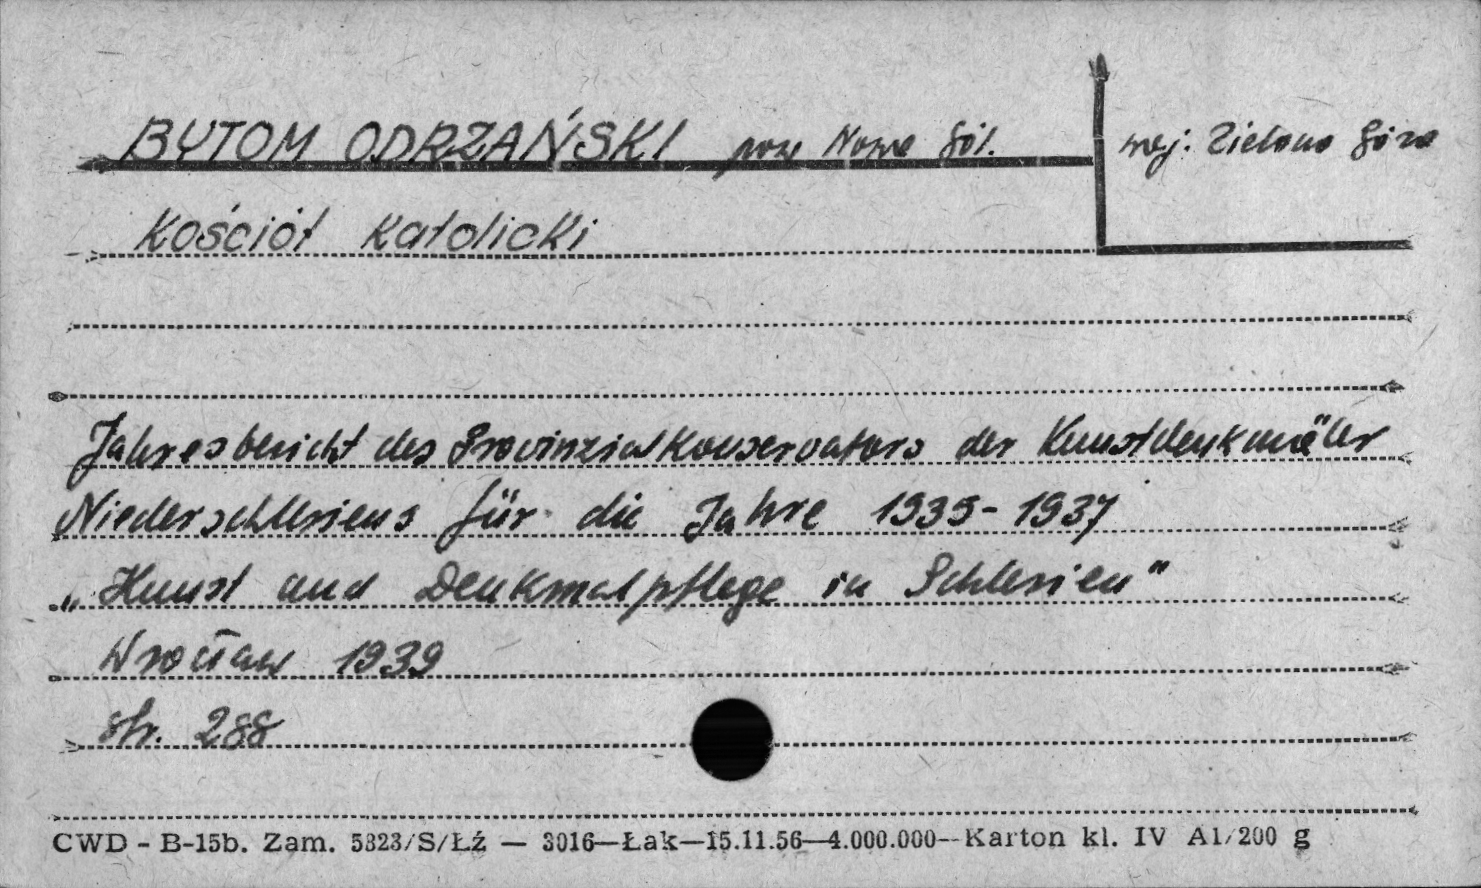 BYTOM ODRZAŃSKI pow Nowa Sól. woj: Zielona Góra
Kościół Katolicki
Jahresbericht des Provinzialkonservators der Kunstdenkmäler
Niederschlesiens für die Jahre 1935-1937
„Kunst und Denkmalpflege in Schlesien"
Wrocław 1939
str. 288
CWD - B-15b. Zam. 5323/S/Łź — 3016—Łak—15.11.56—4.000.000--Karton kl. IV A1/200 g